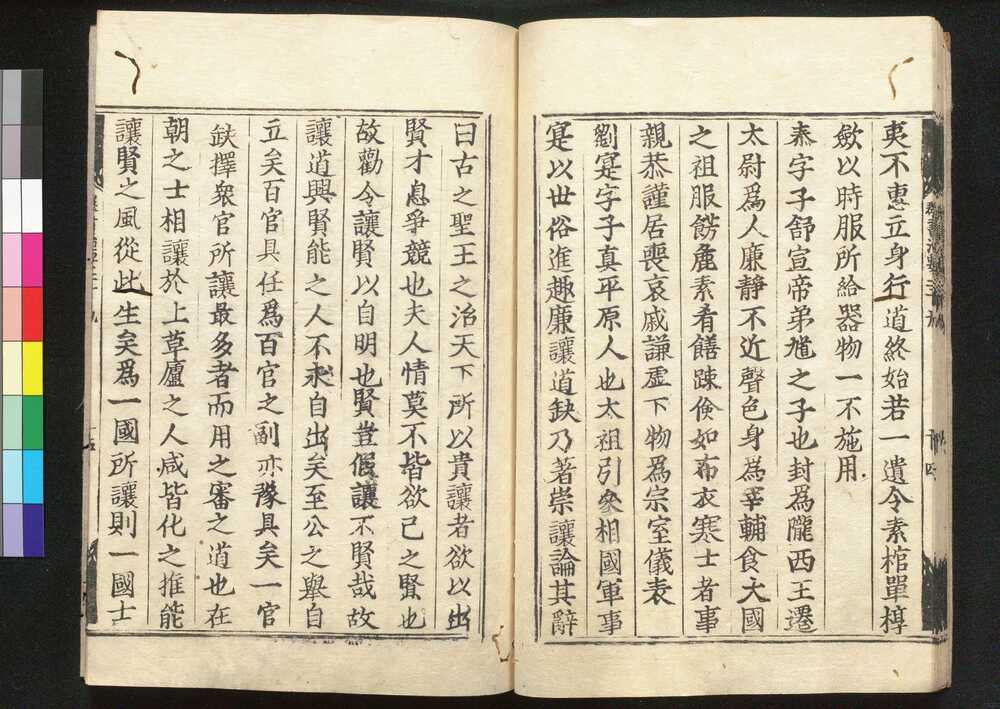 夷不惠立身行道終始若一遺令素棺單椁
斂以時服所給器物一不施用
泰字子舒宣帝弟馗之子也封爲隴西王遷
太尉爲人廉靜不近聲色身爲宰輔食大國
之祖服餝麁素肴饍踈儉如布衣寒士者事
親恭謹居喪哀戚謙虛下物爲宗室儀表
劉寔字子真平原人也太祖引參相國軍事
寔以世俗進趣廉讓道缺乃著崇讓論其辭
曰古之聖王之治天下所以貴讓者欲以出
賢才息爭競也夫人情莫不皆欲己之賢也
故勸令讓賢以自明也賢豈假讓不賢哉故
讓道興賢能之人不求自出矣至公之舉自
立矣百官具任爲百官之副亦豫具矣一官
缺擇衆官所讓最多者而用之審之道也在
朝之士相讓於上草廬之人咸皆化之推能
讓賢之風從此生矣爲一國所讓則一國士